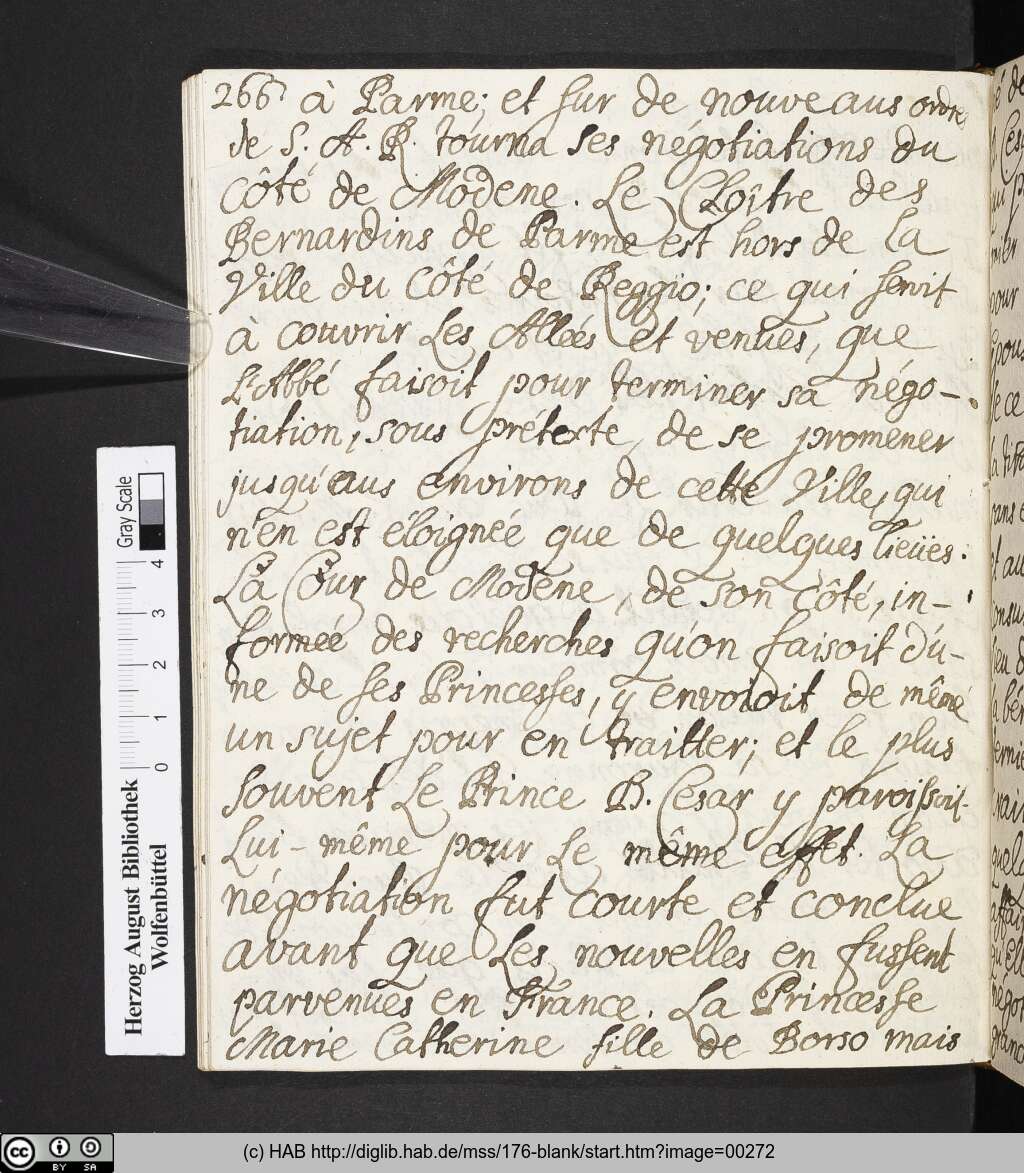 266. à Parme; et sur de nouveaus ordre
de S. A. R. tourna ses négotiations du
Côté de Modene. Le Cloître des
Bernardins de Parme est hors de la
Ville du Côté de Reggio; ce qui servit
à couvrir les Alleés et venues, que
L'Abbé faisoit pour terminer sa négo-
tiation, sous prétexte, de se promener
jusqu'aus environs de cette Ville, qui
n'en est éloigneé que de quelques lieües.
La Cour de Modene, de son Côté, in-
formeé des recherches qu'on faisoit d'u-
ne de ses Princesses, y envoioit de même
un sujet pour en traitter; et le plus
souvent Le Prince B. César y paroissoit
Lui-même pour Le même effet. La
négotiation fut courte et conclue
avant que Les nouvelles en fussent
parvenues en France. La Princesse
Marie Catherine fille de Borso mais
Herzog August Bibliothek
Wolfenbüttel
Gray Scale
0 1 2 3 4
cc BY SA
(c) HAB http://diglib.hab.de/mss/176-blank/start.htm?image=00272